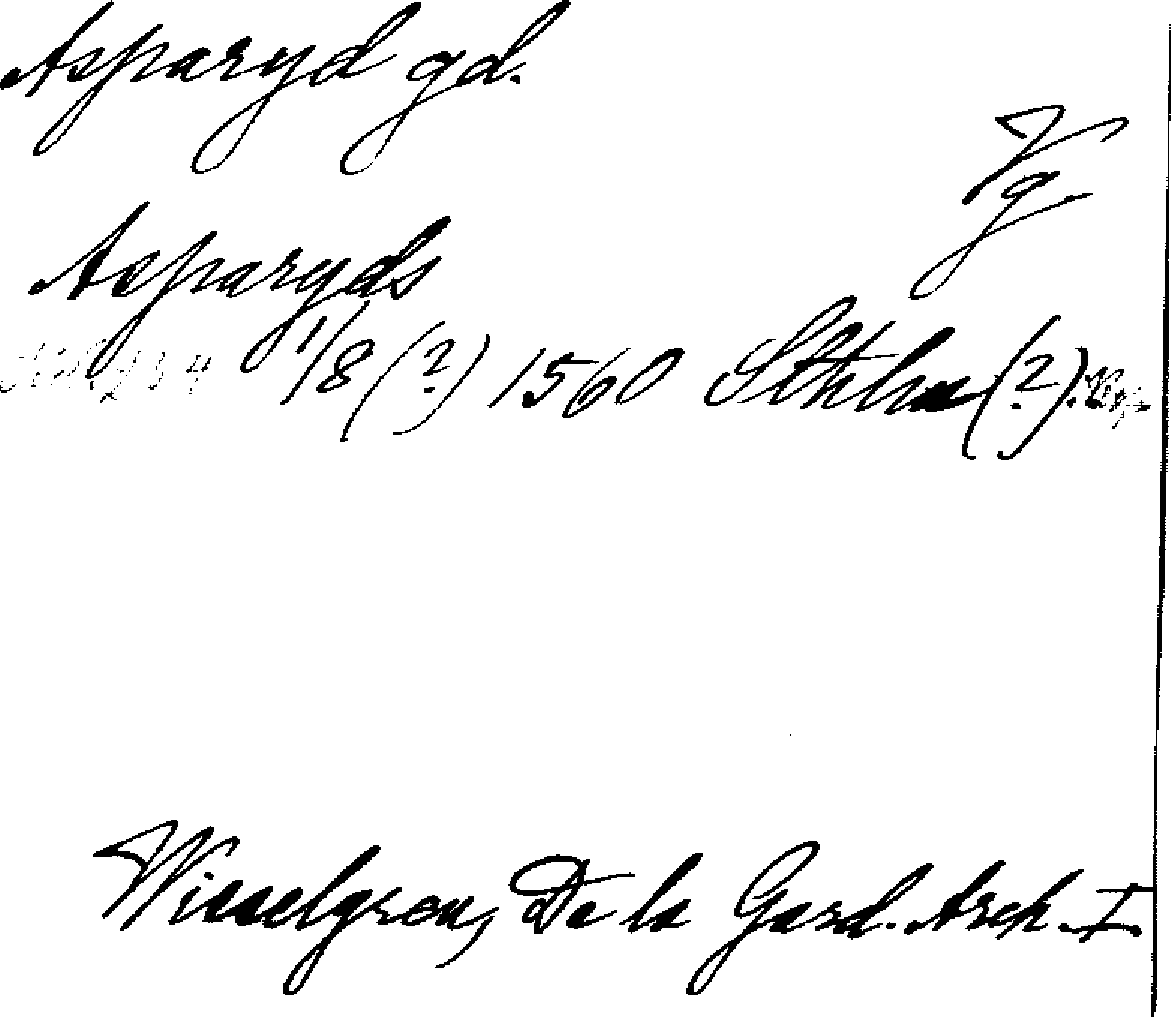 Asparyd gd.
Vg
Asparyds
1/8 (?) 1560 Sthlm (?).
Wieselgren, De la Gard. Arch. I.